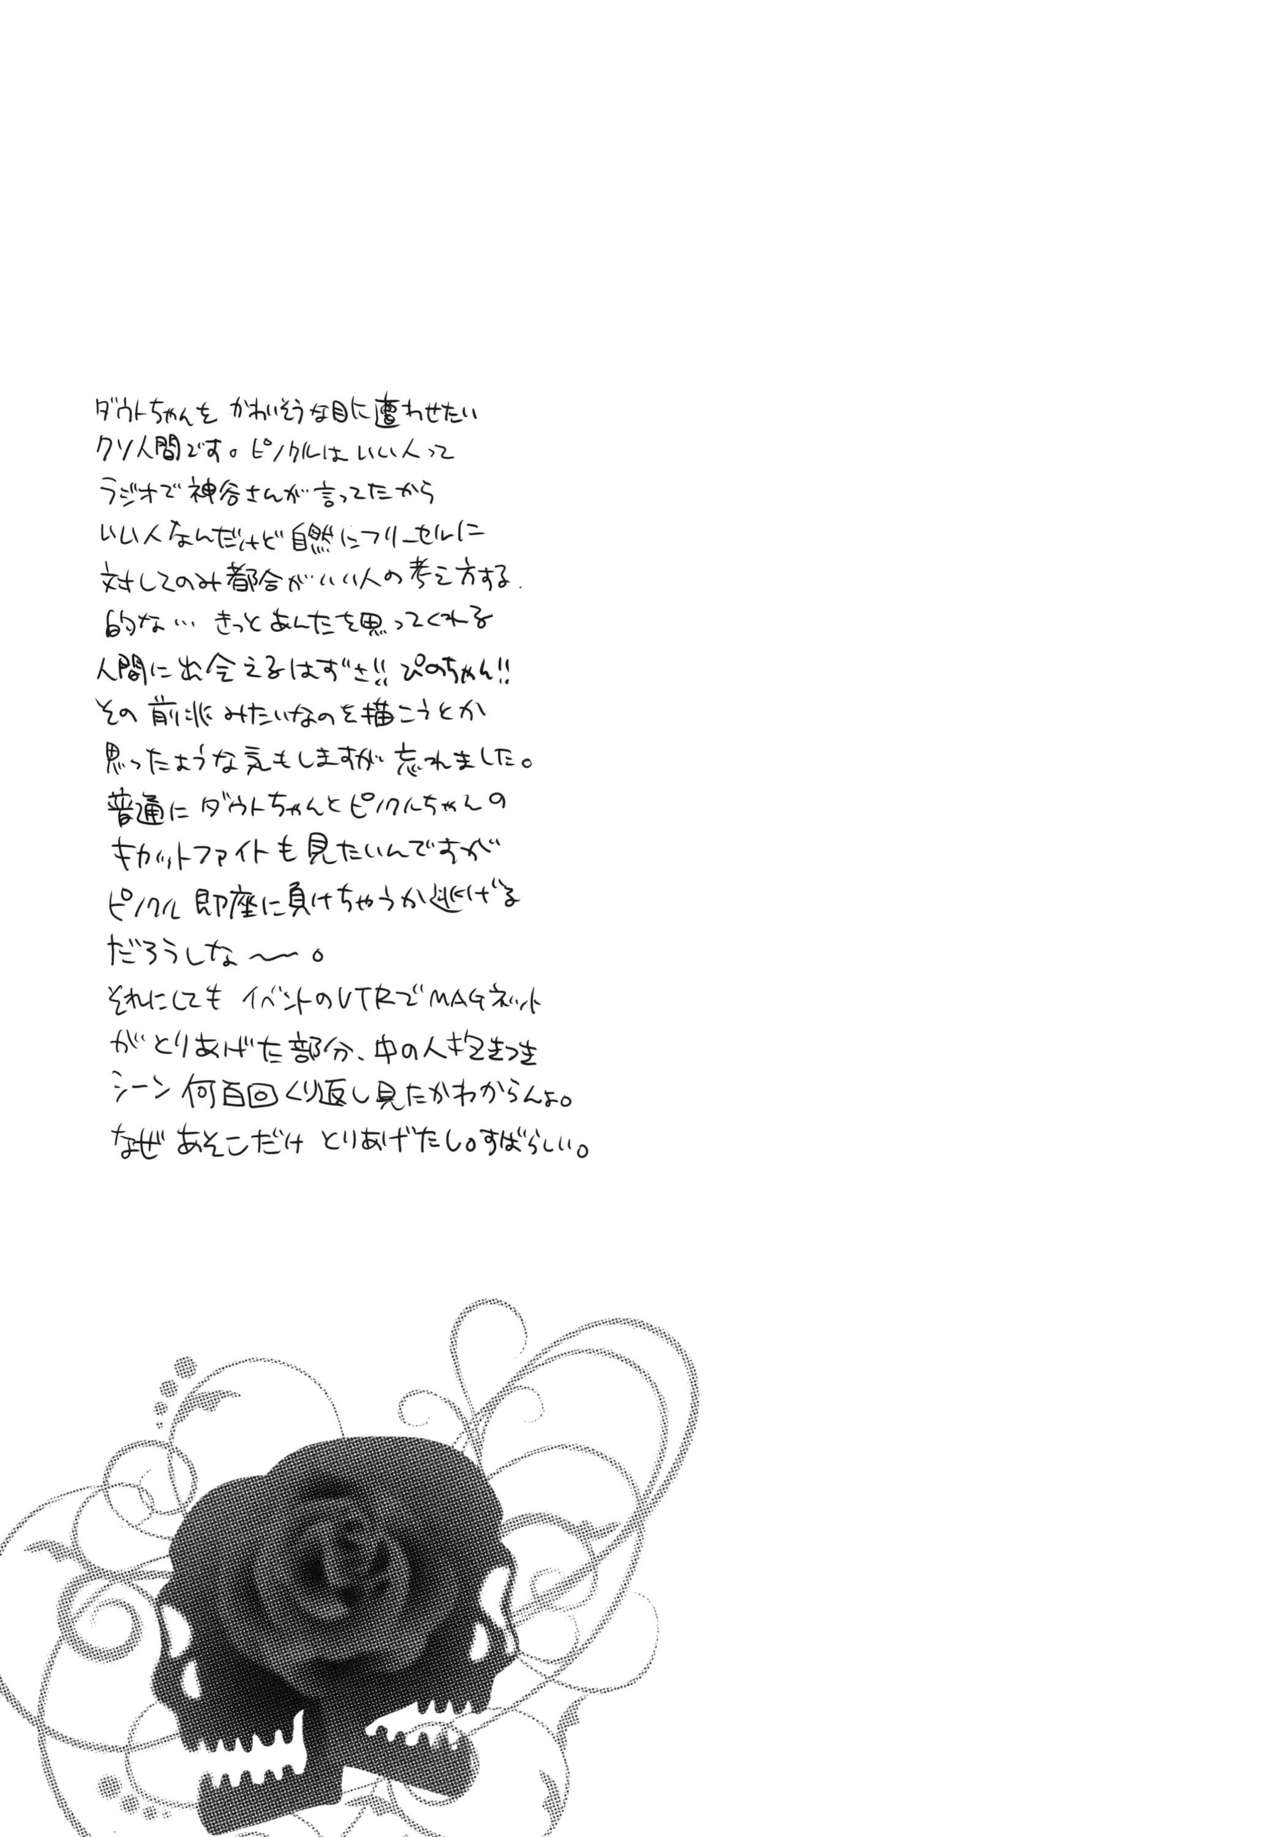 ダウトちゃんを かわいそうな目に遭わせたい
クソ人間です。ピノクルは いい人って
ラジオで 神谷さんが 言ってたから
いい人なんだけど 自然にフリーセルに
対してのみ 都合がいい人の考え方する.
的な… きっと あんたを思ってくれる
人間に出会えるはずさ!! ぴのちゃん!!
その 前兆みたいなのを描こうとか
思ったような気もしますが 忘れました。
普通に ダウトちゃんとピノクルちゃんの
キャットファイトも 見たいんですが
ピノクル 即座に負けちゃうか逃げる
だろうしな〜〜。
それにしても イベントのVTRでMAGネット
がとりあげた部分、中の人抱きつき
シーン 何百回くり返し見たかわからんよ。
なぜ あそこだけ とりあげたし。すばらしい。